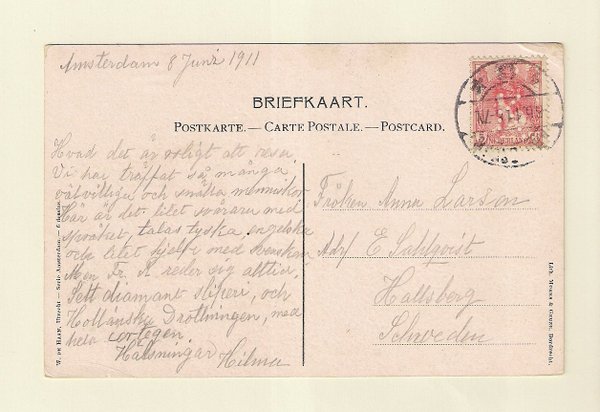 Amsterdam 8 Juni 1911
BRIEFKAART.
POSTKARTE. — CARTE POSTALE. — POSTCARD.
Hvad det är roligt att resa.
Vi har träffat så många
välvilliga och snälla menniskor
Här är det litet svårare med
språket, talas tyska, engelska
och litet hjelp med svenskan
Men Fr. A reder sig alltid.
Sett diamant sliperi, och
Holländska Drottningen, med
hela cortegen.
Hälsningar Hilma
Fröken Anna Larson
Adr/ E. Sahlqvist
Hallsberg
Schweden
W. DE HAAN, Utrecht — Serie Amsterdam. — 6
Lith. & Dordrecht.
NEDERLAND